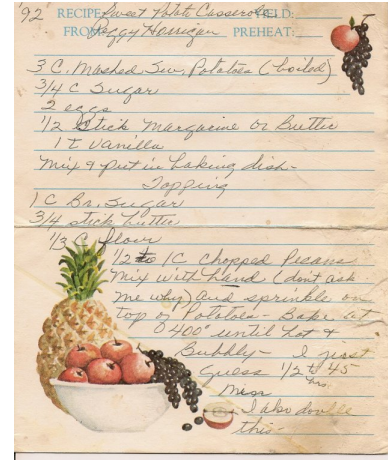 92 RECIPE: Sweet Potato Casserole YIELD:
FROM: Peggy Horrigan PREHEAT:
3 C. Mashed Sw. Potatoes (boiled)
3/4 C Sugar
2 eggs
1/2 Stick Margarine or Butter
1 t vanilla
Mix & put in baking dish-
Topping
1 C Br. Sugar
3/4 stick butter
1/3 C flour
1/2 to 1C Chopped Pecans
Mix with hand (don't ask
me why) and sprinkle on
top of Potatoes- Bake at
400° until hot &
Bubbly- I just
guess 1/2 to 45
min
hrs.
I also double
this-